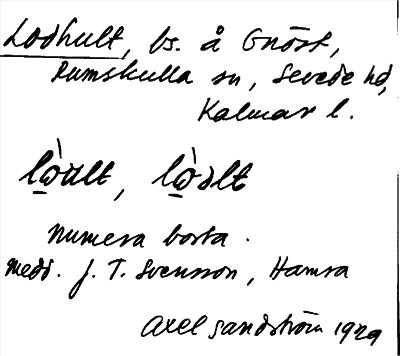 Lodhult, bs. å Gnöst,
Rumskulla sn, Sevede hd,
Kalmar l.
lò̱ult, lò̱dlt
numera borta.
Medd. J. T. Svensson, Hamra
Axel Sandström 1929